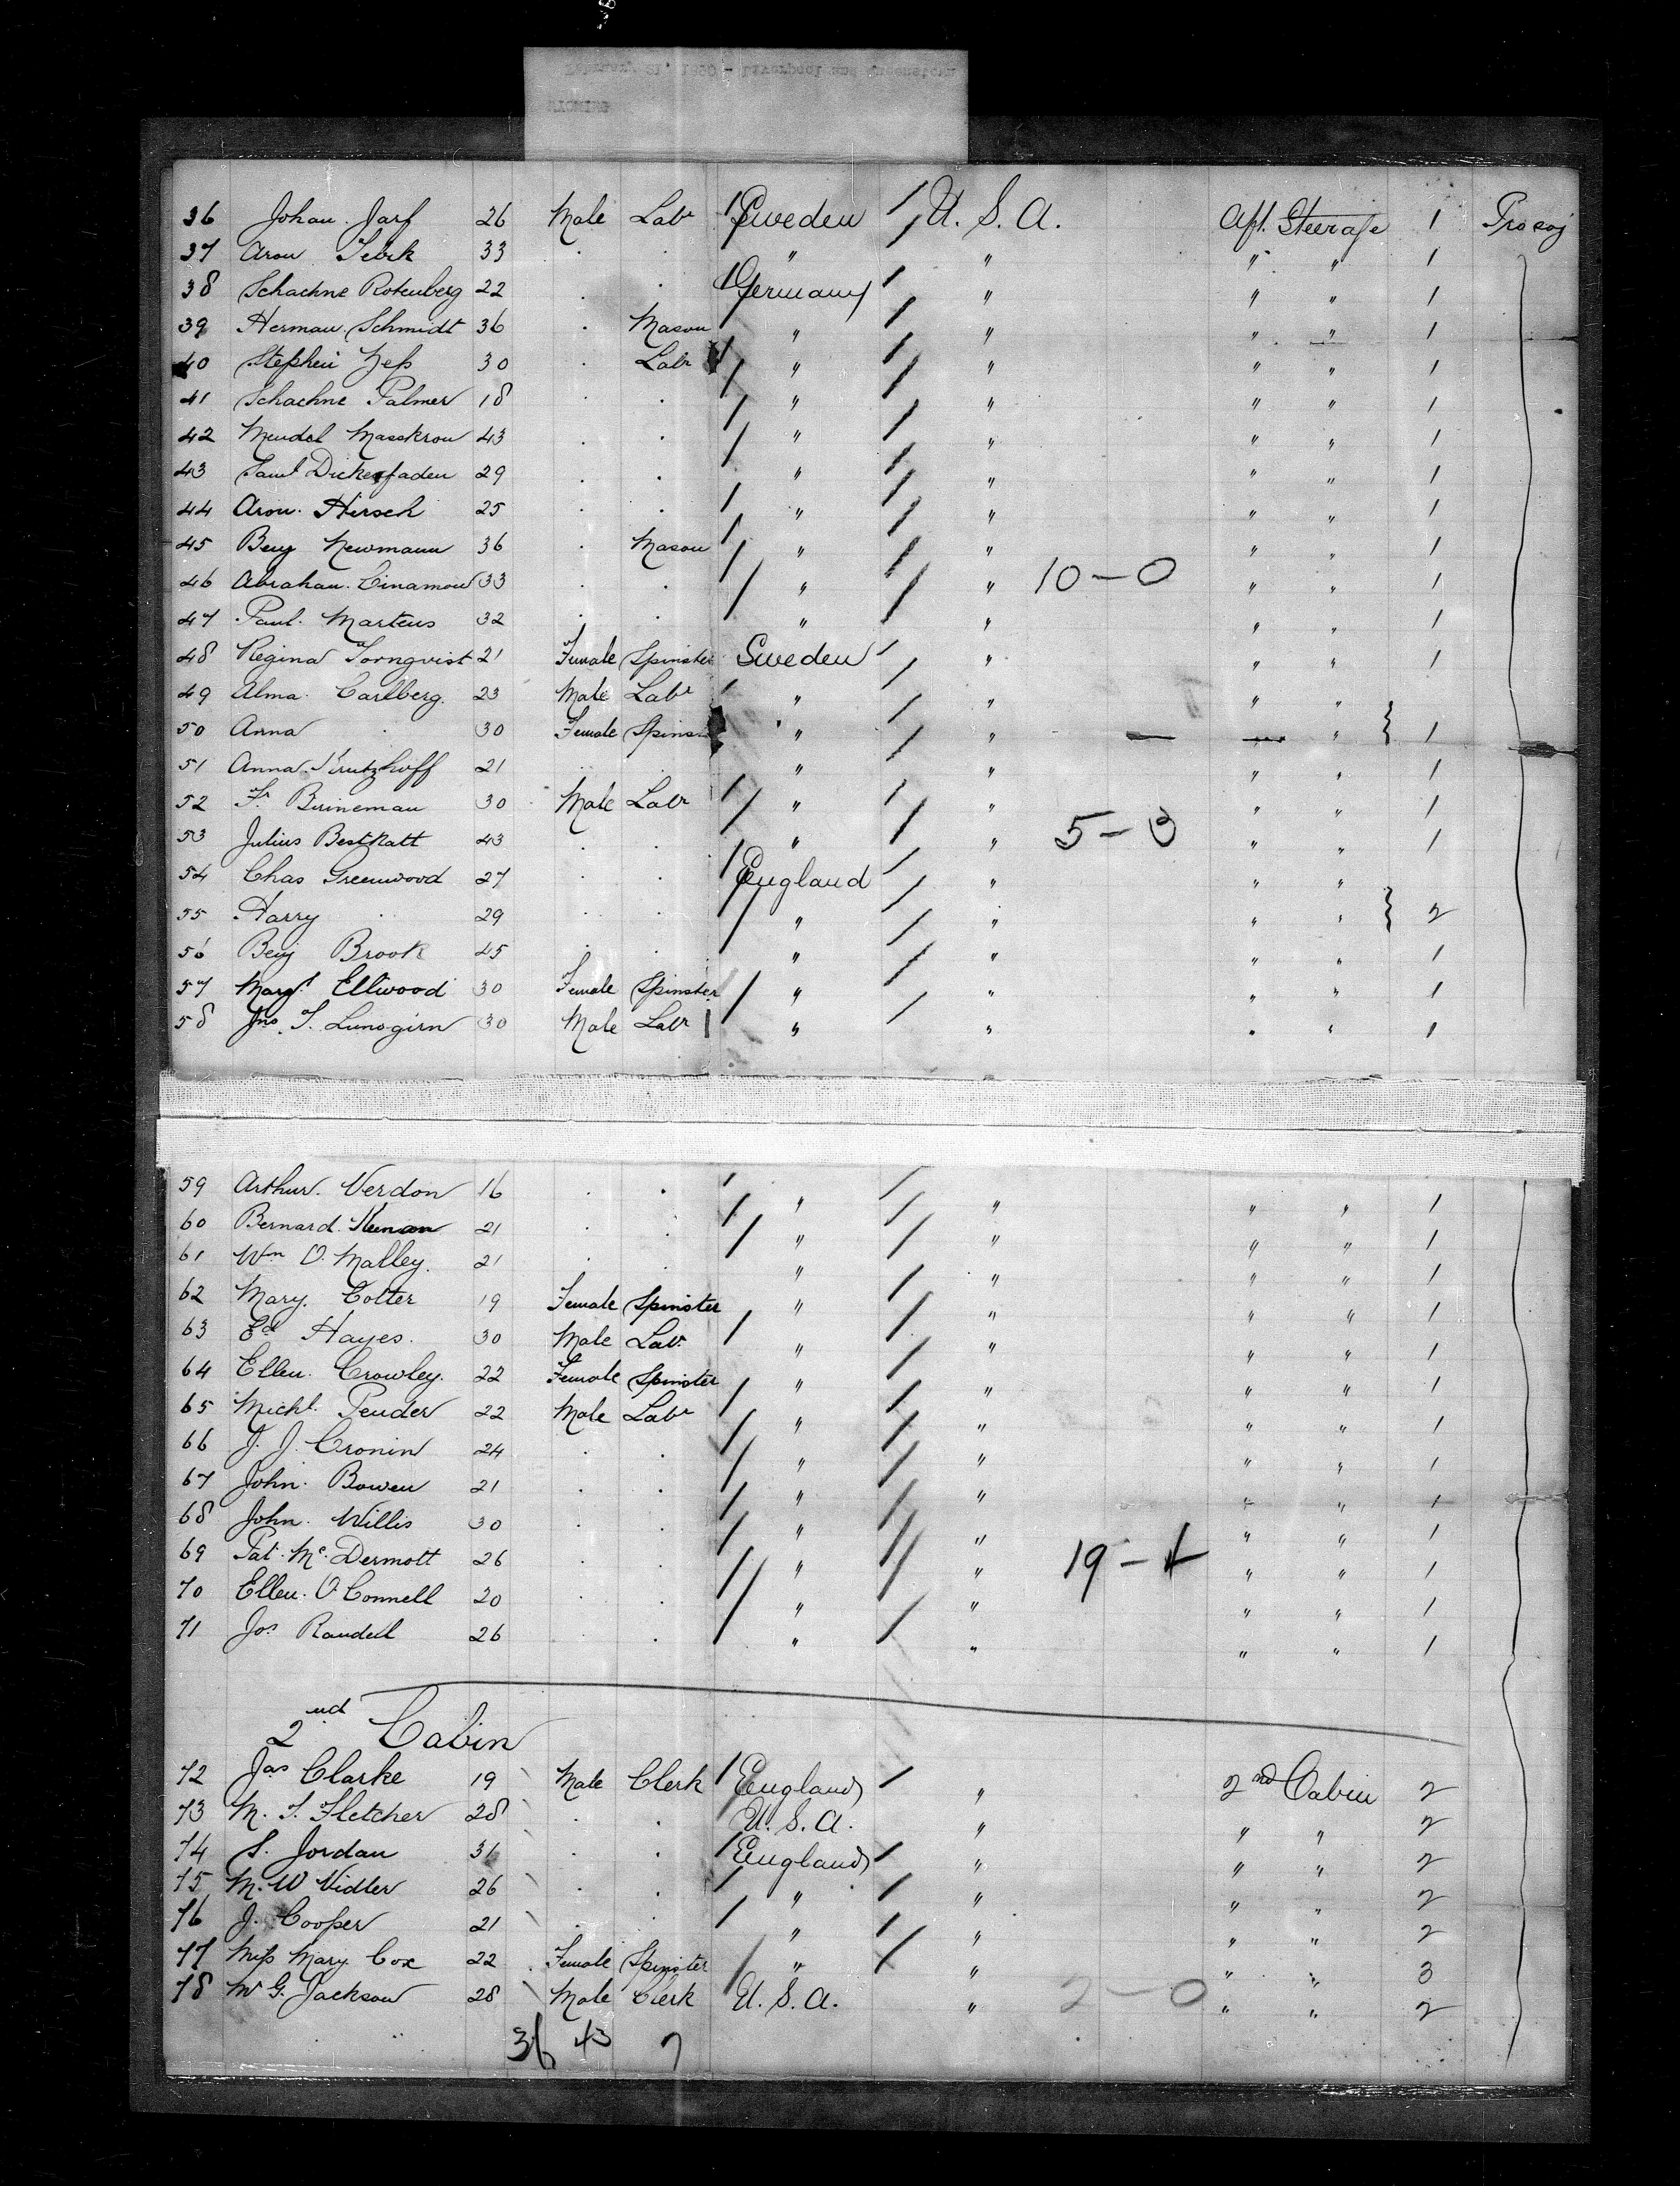 36 Johan Jarf 26 Male Labr Sweden U. S. A. Aft. Steerage 1
37 Aron 33 " " " " 1
38 Schachne Rotenberg 22 Germany " " " 1
39 Herman Schmidt 36 Mason " " " " 1
40 Stephen 30 Labr " " " " 1
41 Schachne Palmer 18 " " " " 1
42 Mendel Masskrow 43 " " " " 1
43 Saml Dickerfaden 29 " " " " 1
44 Aron Hirsch 25 " " " " 1
45 Benj Newmann 36 Mason " " " " 1
46 Abraham Cinamon 33 " " 10 - 0 " " 1
47 Paul Martens 32 " " " " 1
48 Regina Tornqvist 21 Female Spinster Sweden " " " 1
49 Alma Carlberg 23 Male Labr " " " "
50 Anna 30 Female " " " 1
51 Anna 21 " " " " 1
52 Fr Brineman 30 Male Labr " " " " 1
53 Julius Bestkatt 43 " " 5 - 3 " " 1
54 Chas Greenwood 27 England " " "
55 Harry 29 " " " " 2
56 Benj Brook 45 " " " " 1
57 Margt Ellwood 30 Female Spinster " " " " 1
58 Jno. T. Lunogirn 30 Male Labr " " " " 1
59 Arthur Verdon 16 " " " " 1
60 Bernard Keenan 21 " " " " 1
61 Wm O. Malley. 21 " " " " 1
62 Mary Cotter 19 Female Spinster " " " " 1
63 Ed Hayes. 30 Male Labr " " " " 1
64 Ellen Crowley. 22 Female Spinster " " " " 1
65 Michl. Pender 22 Male Labr " " " " 1
66 J. J. Cronin 24 " " " " 1
67 John Bowen 21 " " " " 1
68 John Willis 30 " " " " 1
69 Pat Mc. Dermott 26 " " 19 - " " 1
70 Ellen O. Connell 20 " " " " 1
71 Jos Randell 26 " " " " 1
2nd Cabin
72 Jas Clarke 19 Male Clerk England " 2nd Cabin 2
73 M. T. Fletcher 28 U. S. A. " " " 2
74 S. Jordan 31 England " " " 2
75 M. W Vidler 26 " " " " 2
76 J. Cooper 21 " " " " 2
77 Miss Mary Cox 22 Female Spinster " " " " 3
78 W G. Jackson 28 Male Clerk U. S. A. " 2 - 0 " " 2
36 43 7